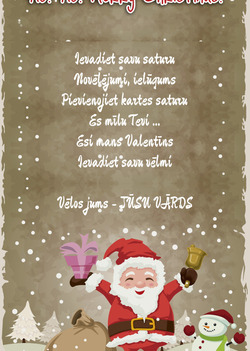 Ho! Ho! Merry Christmas!
Ievadiet savu saturu
Novēlējumi, ielūgums
Pievienojiet kartes saturu
Es mīlu Tevi ...
Esi mans Valentīns
Ievadiet savu vēlmi
Vēlos jums - JŪSU VĀRDS